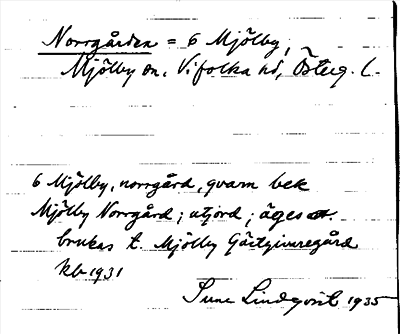 Norrgården = 6 Mjölby,
Mjölby sn, Vifolka hd, Österg. l.
6 Mjölby, norrgård, qvarn bek
Mjölby Norrgård; utjord; äges o.
brukas t. Mjölby Gästgivaregård
kb 1931
Sune Lindqvist 1935